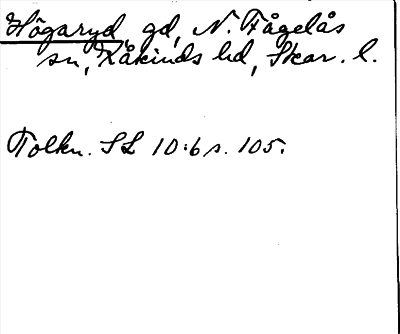 Högaryd, gd, N. Fågelås
sn, Kåkinds hd, Skar. l.
Tolkn. SL 10:6 s. 105.